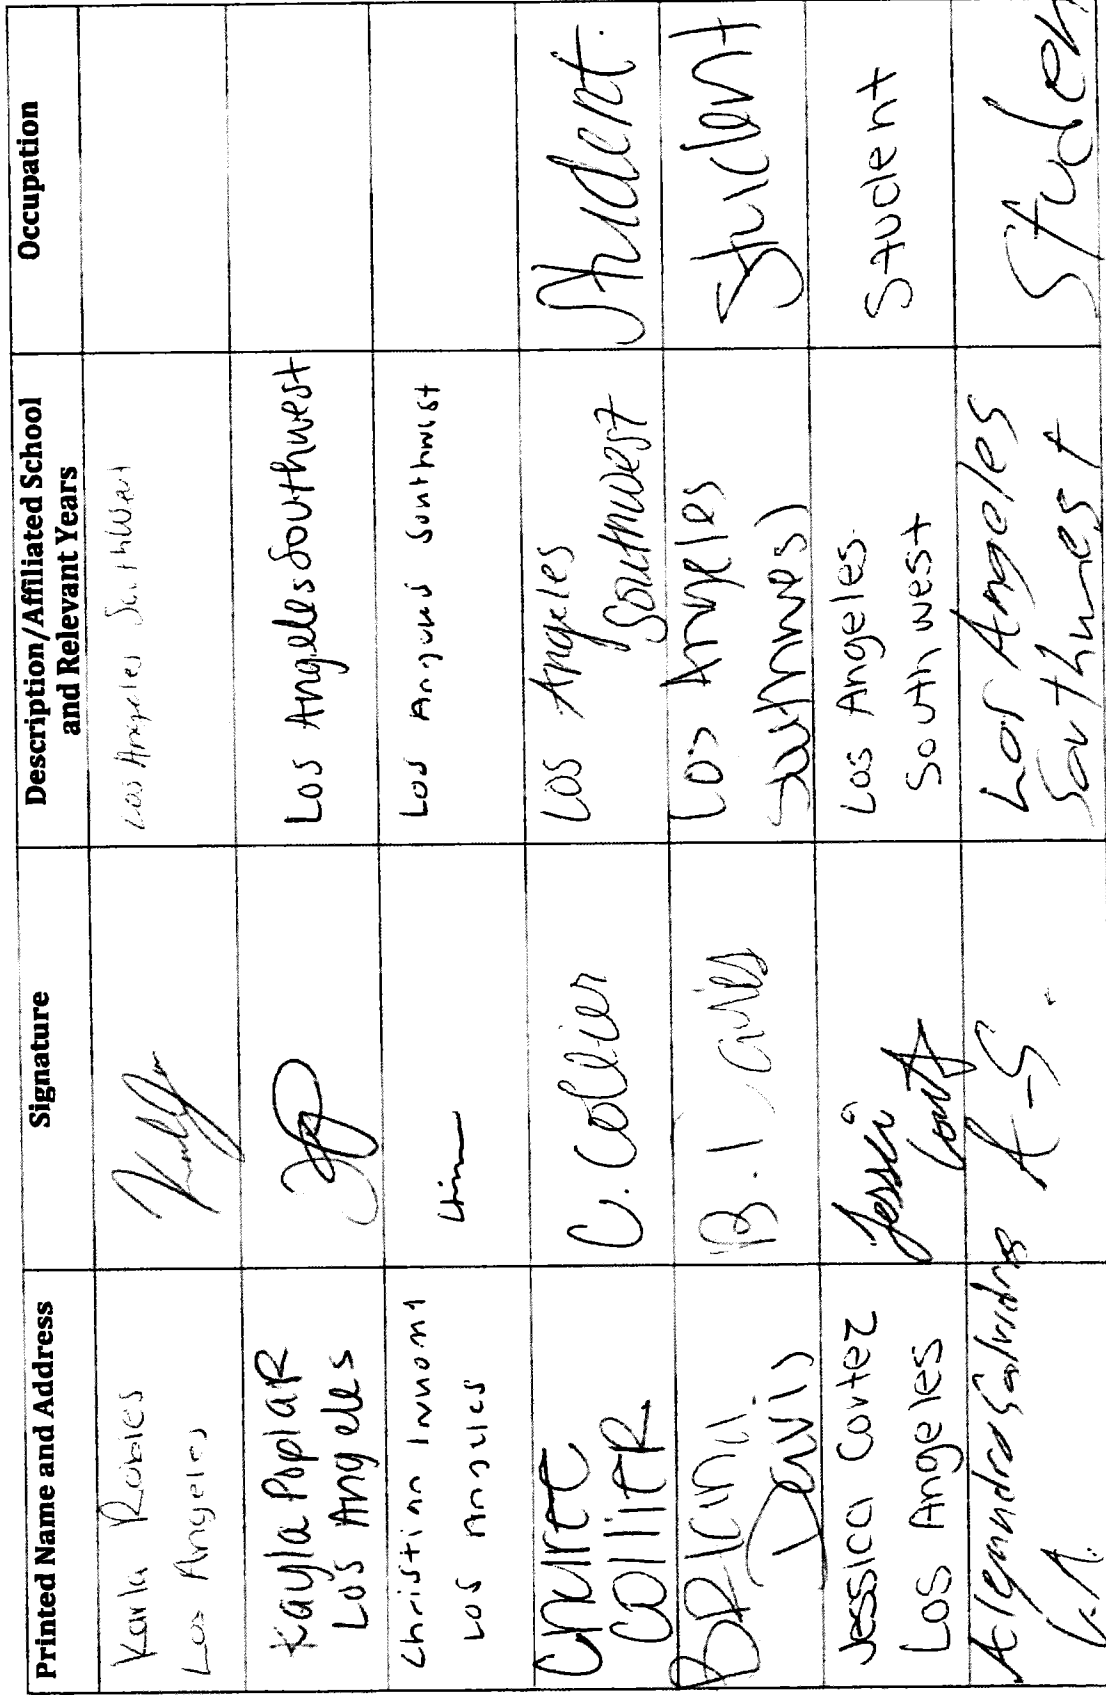 Printed Name and Address
Signature
Description/Affiliated School
and Relevant Years
Occupation
Karla Robles
Los Angeles
Los Angeles Southwest
Kayla PoplaR
Los Angeles
Los Angeles Southwest
Christian
Los Angeles
Los Angeles Southwest
COlliER
C. Collier
Los Angeles
Southwest
Student.
BRIana
Davis
B. Davis
Los Angeles
Southwest
Student
Jessica Cortez
Los Angeles
Jessica
Los Angeles
Southwest
Student
Alejandra
L.A.
A-S.
Los Angeles
Southwest
Student